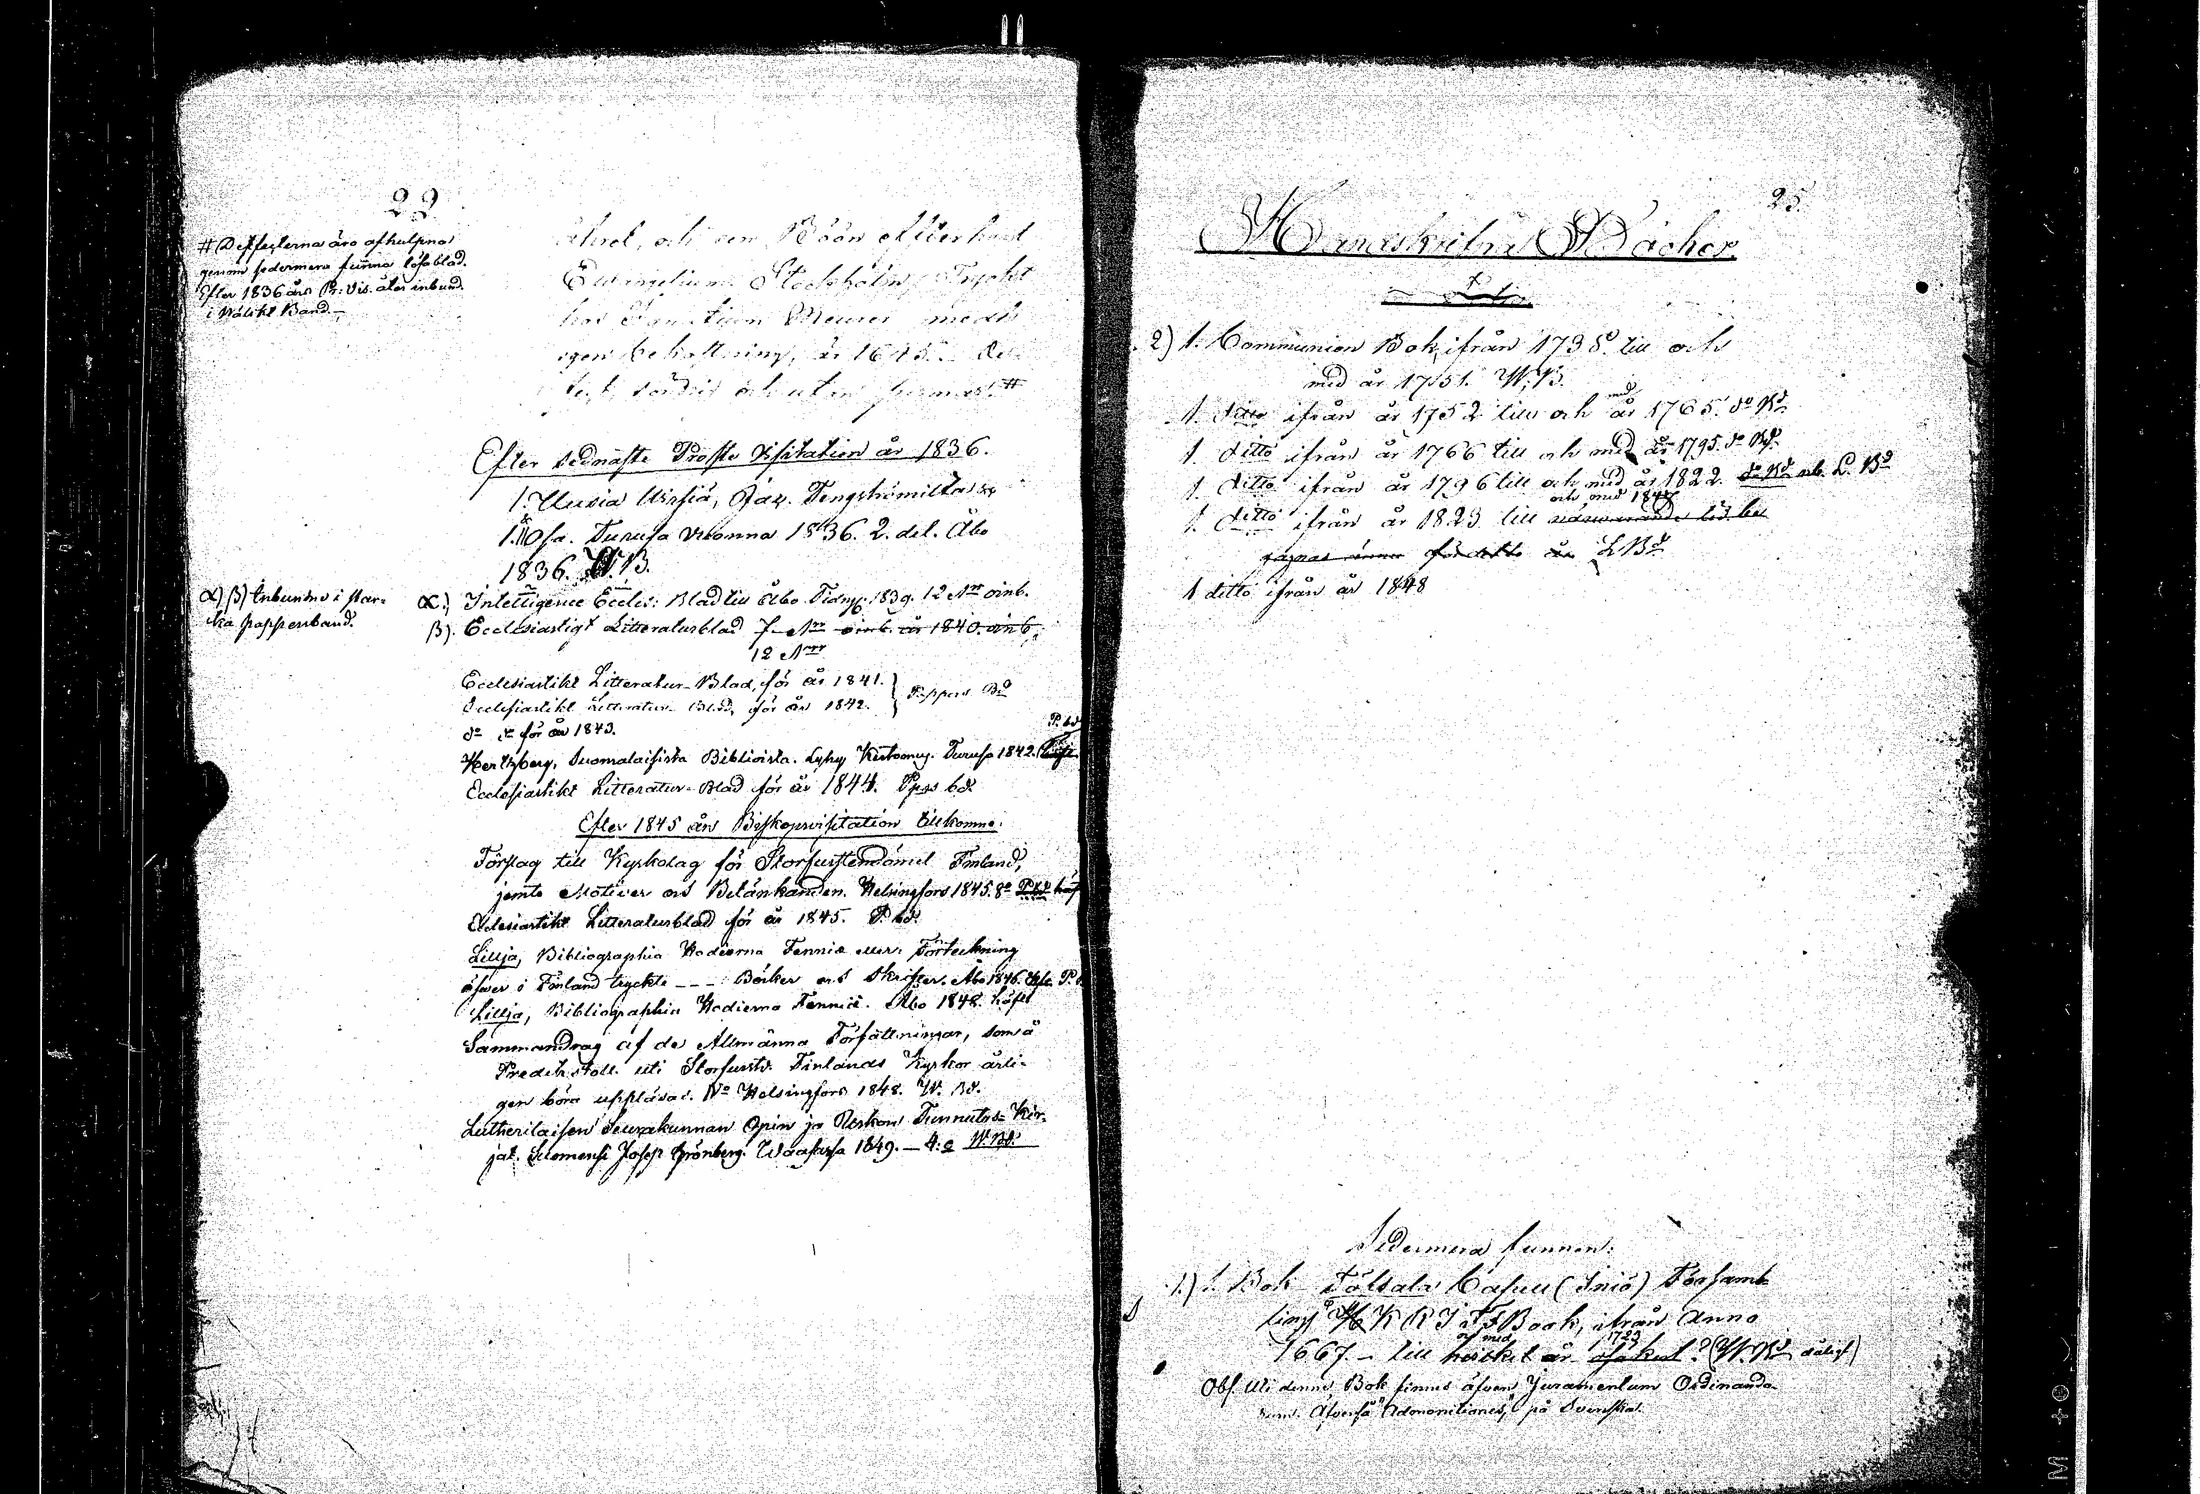 22
# Deffecterna äro afhulpna
genom sedermera funna lösa blad.
Efter 1836 års Pr: Vis. åter inbund.
i Wälskt Band. —
och en Böön
Evangelium Stockholm, Tryckt
hos Meurer medh
egen bekostning, år 1645.
söndrig och utan permar. #
Efter sednaste Prosts Visitation år 1836.
1. Uusia Wirsiä, Jac. Tengströmiltä
1. Osa. Turusa vuonna 1836. 2. del. Åbo
1836. W. B.
α) β) Inbundne i star-
ka pappersband.
α.) Intelligence Eccles: Blad till Åbo Tidng. 1839. 12 Nrr oinb.
β). Ecclesiastigt Litteraturblad 7 Nrr oinb. år 1840. oinb.
12 Nrr
Ecclesiastikt Litteratur-Blad, för år 1841. } Pappers Bd
Ecclesiastikt Litteratur-Blad, för år 1842.
do do för år 1843.
P. bd
Hertzberg, Suomalaisista Biblioista. Lyhy Kertomus. Turusa 1842.
Ecclesiastikt Litteratur-Blad för år 1844. Ppss bd.
Efter 1845 års Biskopsvisitation tillkomne.
Förslag till Kyrkolag för Storfurstendömet Finland,
jemte Motiver och Betänkanden. Helsingfors 1845. 8o
Ecclesiastikt Litteraturblad för år 1845. P. bd.
Lillja, Bibliographia Hodierna Fenniæ eller: Förteckning
öfver i Finland tryckte - - - Böcker och Skrifter. Åbo 1846. P.
Lillja, Bibliographia Hodierna Fenniæ. Åbo 1848. häft
Sammandrag af de Allmänna Författningar, som å
Predikstoln uti Storfurstd. Finlands Kyrkor årli-
gen böra uppläsas. Helsingfors 1848. W. Bd.
Lutherilaisen Seurakunnan Opin ja Uskon Tunnutus-Kir-
jat. Suomensi Josep Grönberg. Waasasa 1849. — 4:o W. Bd.
25.
Handskrifna Böcker.
2) 1. Communion Bok, ifrån 1738. till och
med år 1751. W. B.
1. ditto ifrån år 1752 till och med år 1765. do Bd
1. ditto ifrån år 1766 till och med år 1795. do Bd.
1. ditto ifrån år 1796 till och med år 1822. do Bd nb. L. Bd
och med 1847
1. ditto ifrån år 1823 till närvarande tid be
gagnas ännu för detta år L Bd
1 ditto ifrån år 1848
Sedermera funnen:
1.) 1. Bok Töfsala Capell (Iniö) Församb
lings K R Book, ifrån Anno
och med 1723
1667. — till hvilket år ? (W. Bd dåligt)
Obs. Uti denna Bok finnes äfven Juramentum Ordinando-
rum. Äfvenså "Admonitiones," på Svenska.